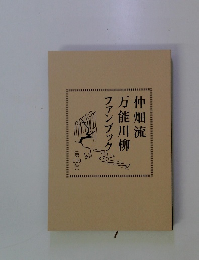 仲畑流
万能川柳
ファンブック